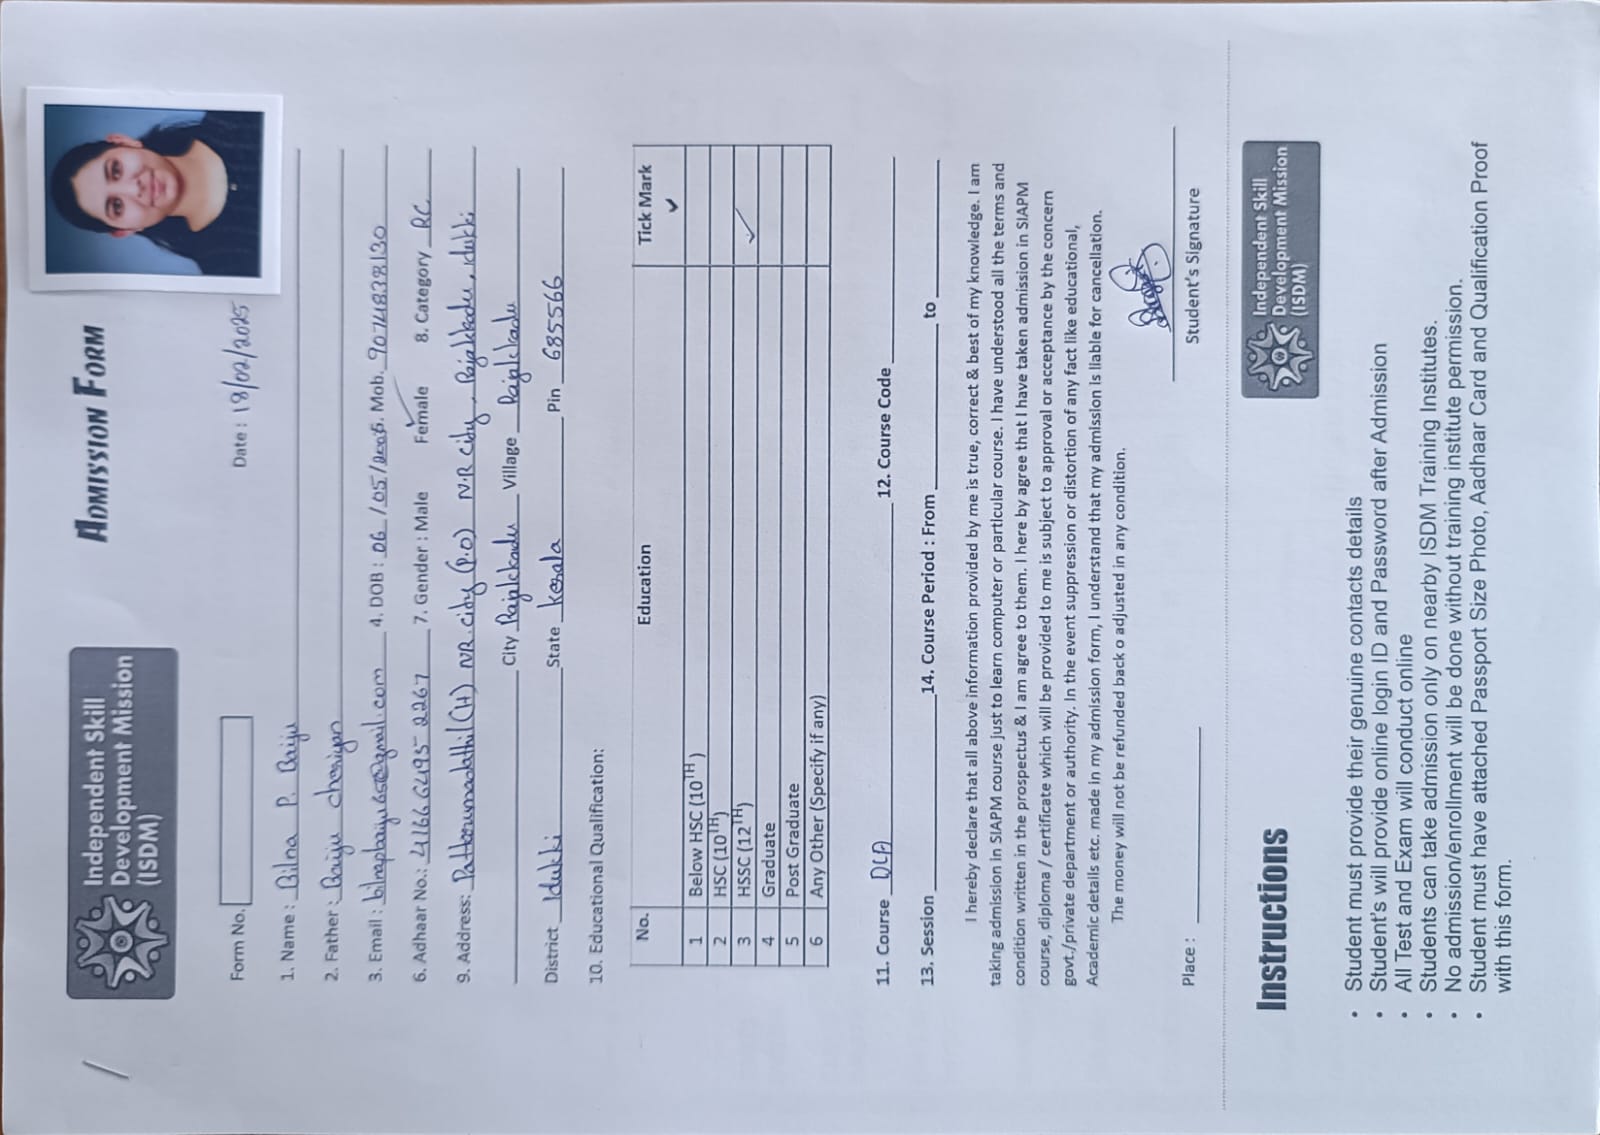 Independent Skill
Development Mission
(ISDM)
ADMISSION FORM
Form No.
Date : 18/02/2025
1. Name : Bilna P. Baiju
2. Father : Baiju cheriyan
3. Email : bilnapbaiju65@gmail.com 4. DOB : 06/05/2005. Mob. 9074838130
6. Adhaar No.: 4166 6495 2267 7. Gender : Male Female ✓ 8. Category RC
9. Address: (H) NR.city (P.O) N.R city, Rajakkadu, idukki
City Rajakkadu Village Rajakkadu
District Idukki State Kerala Pin 685566
10. Educational Qualification:
No. Education Tick Mark ✓
1 Below HSC (10TH)
2 HSC (10TH)
3 HSSC (12TH) ✓
4 Graduate
5 Post Graduate
6 Any Other (Specify if any)
11. Course DCA 12. Course Code
13. Session 14. Course Period : From to
I hereby declare that all above information provided by me is true, correct & best of my knowledge. I am
taking admission in SIAPM course just to learn computer or particular course. I have understood all the terms and
condition written in the prospectus & I am agree to them. I here by agree that I have taken admission in SIAPM
course, diploma / certificate which will be provided to me is subject to approval or acceptance by the concern
govt./private department or authority. In the event suppression or distortion of any fact like educational,
Academic details etc. made in my admission form, I understand that my admission is liable for cancellation.
The money will not be refunded back o adjusted in any condition.
Place :
Student's Signature
Instructions
Independent Skill
Development Mission
(ISDM)
• Student must provide their genuine contacts details
• Student's will provide online login ID and Password after Admission
• All Test and Exam will conduct online
• Students can take admission only on nearby ISDM Training Institutes.
• No admission/enrollment will be done without training institute permission.
• Student must have attached Passport Size Photo, Aadhaar Card and Qualification Proof
with this form.